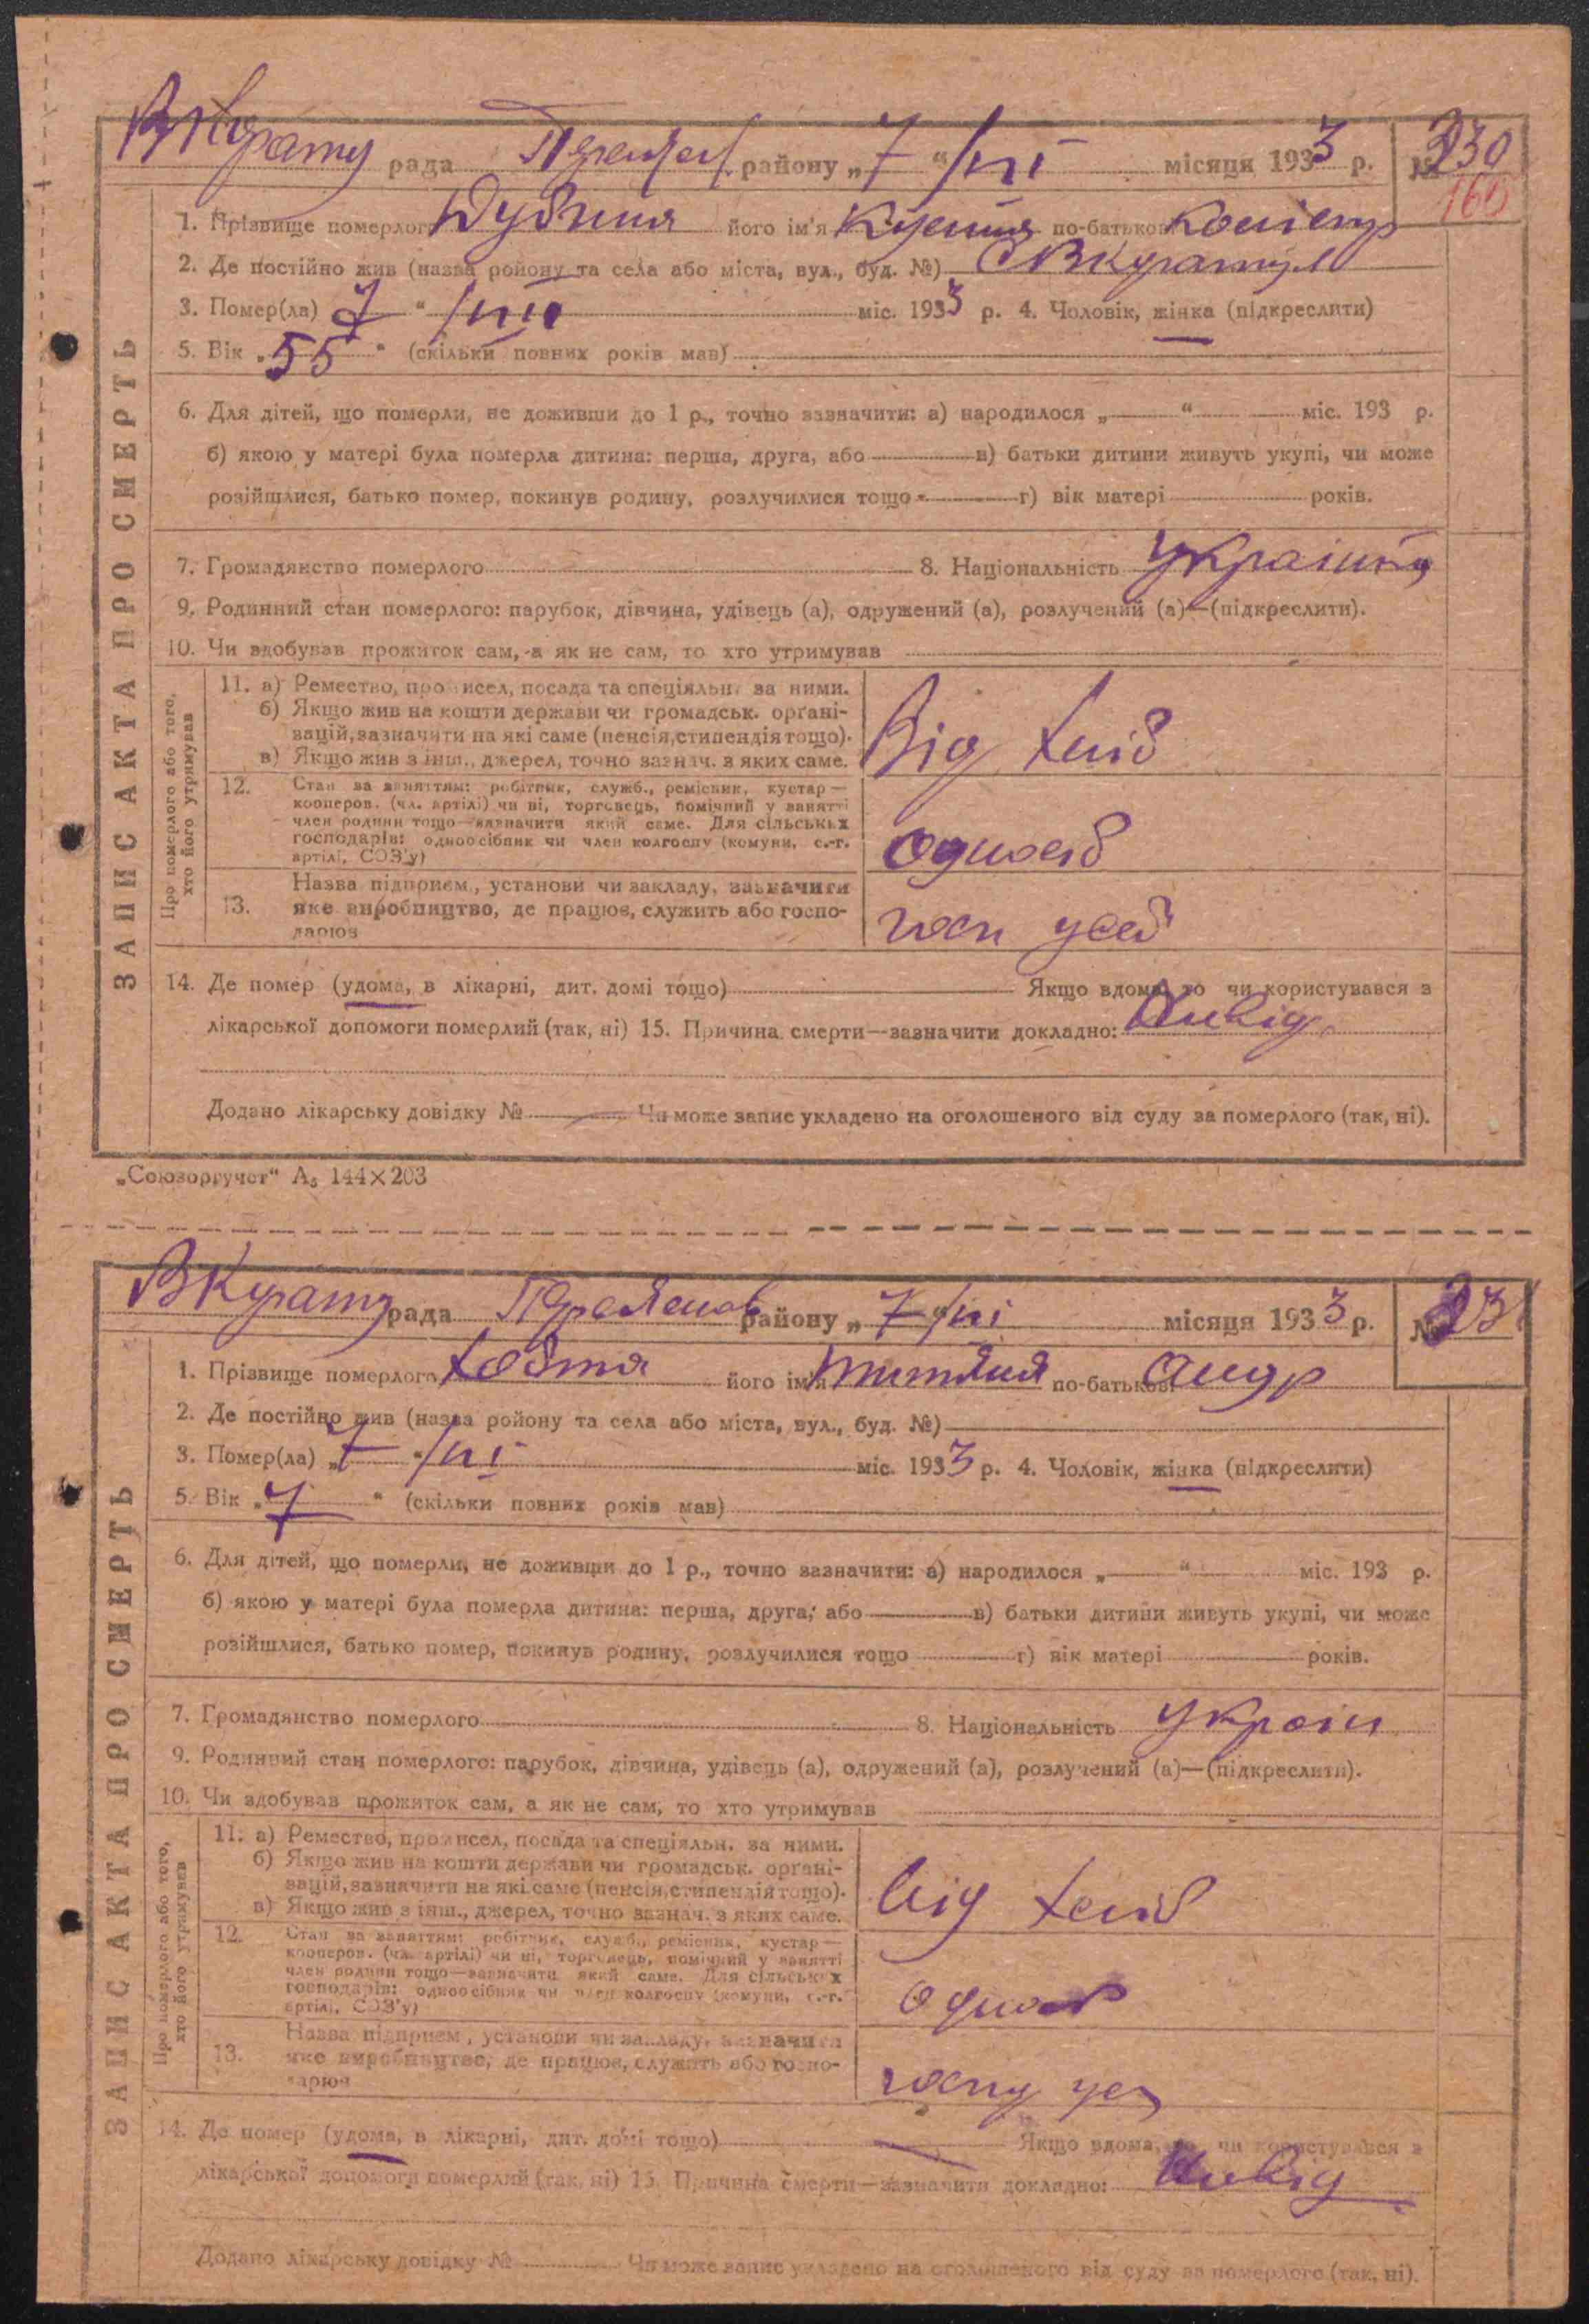 ЗАПИС АКТА ПРО СМЕРТЬ
рада району „7“ місяця 1933 р. № 230
160
1. Прізвище померлого його ім'я по-батькові
2. Де постійно жив (назва ройону та села або міста, вул., буд. №)
3. Помер(ла) 7 “ міс. 1933 р. 4. Чоловік, жінка (підкреслити)
5. Вік „55“ (скільки повних років мав)
6. Для дітей, що померли, не доживши до 1 р., точно зазначити: а) народилося „ “ міс. 193 р.
б) якою у матері була померла дитина: перша, друга, або в) батьки дитини живуть укупі, чи може
розійшлися, батько помер, покинув родину, розлучилися тощо г) вік матері років.
7. Громадянство померлого 8. Національність
9. Родинний стан померлого: парубок, дівчина, удівець (а), одружений (а), розлучений (а)—(підкреслити).
10. Чи здобував прожиток сам, а як не сам, то хто утримував
Про померлого або того,
хто його утримував
11. а) Ремество, промисел, посада та спеціяльн. за ними.
б) Якщо жив на кошти держави чи громадськ. органі-
зацій, зазначити на які саме (пенсія, стипендія тощо).
в) Якщо жив з інш., джерел, точно зазнач. з яких саме.
Від
12. Стан за заняттям: робітник, служб., ремісник, кустар—
кооперов. (чл. артілі) чи ні, торговець, помічний у занятті
член родини тощо—зазначити який саме. Для сільських
господарів: одноосібник чи член колгоспу (комуни, с.-г.
артілі, СОЗ'у)
одноосіб
13. Назва підприєм., установи чи закладу, зазначити
яке виробництво, де працює, служить або госпо-
дарює
14. Де помер (удома, в лікарні, дит. домі тощо) Якщо вдома, то чи користувався з
лікарської допомоги померлий (так, ні) 15. Причина смерти—зазначити докладно:
Додано лікарську довідку № Чи може запис укладено на оголошеного від суду за померлого (так, ні).
„Союзоргучет“ А₅ 144×203
ЗАПИС АКТА ПРО СМЕРТЬ
рада району „7“ місяця 1933 р. № 231
1. Прізвище померлого його ім'я по-батькові Андр
2. Де постійно жив (назва ройону та села або міста, вул., буд. №)
3. Помер(ла) „7“ міс. 1933 р. 4. Чоловік, жінка (підкреслити)
5. Вік „7“ (скільки повних років мав)
6. Для дітей, що померли, не доживши до 1 р., точно зазначити: а) народилося „ “ міс. 193 р.
б) якою у матері була померла дитина: перша, друга, або в) батьки дитини живуть укупі, чи може
розійшлися, батько помер, покинув родину, розлучилися тощо г) вік матері років.
7. Громадянство померлого 8. Національність україн
9. Родинний стан померлого: парубок, дівчина, удівець (а), одружений (а), розлучений (а)—(підкреслити).
10. Чи здобував прожиток сам, а як не сам, то хто утримував
Про померлого або того,
хто його утримував
11. а) Ремество, промисел, посада та спеціяльн. за ними.
б) Якщо жив на кошти держави чи громадськ. органі-
зацій, зазначити на які саме (пенсія, стипендія тощо).
в) Якщо жив з інш., джерел, точно зазнач. з яких саме.
від
12. Стан за заняттям: робітник, служб., ремісник, кустар—
кооперов. (чл. артілі) чи ні, торговець, помічний у занятті
член родини тощо—зазначити який саме. Для сільських
господарів: одноосібник чи член колгоспу (комуни, с.-г.
артілі, СОЗ'у)
13. Назва підприєм., установи чи закладу, зазначити
яке виробництво, де працює, служить або госпо-
дарює
14. Де помер (удома, в лікарні, дит. домі тощо) Якщо вдома, то чи користувався з
лікарської допомоги померлий (так, ні) 15. Причина смерти—зазначити докладно:
Додано лікарську довідку № Чи може запис укладено на оголошеного від суду за померлого (так, ні).